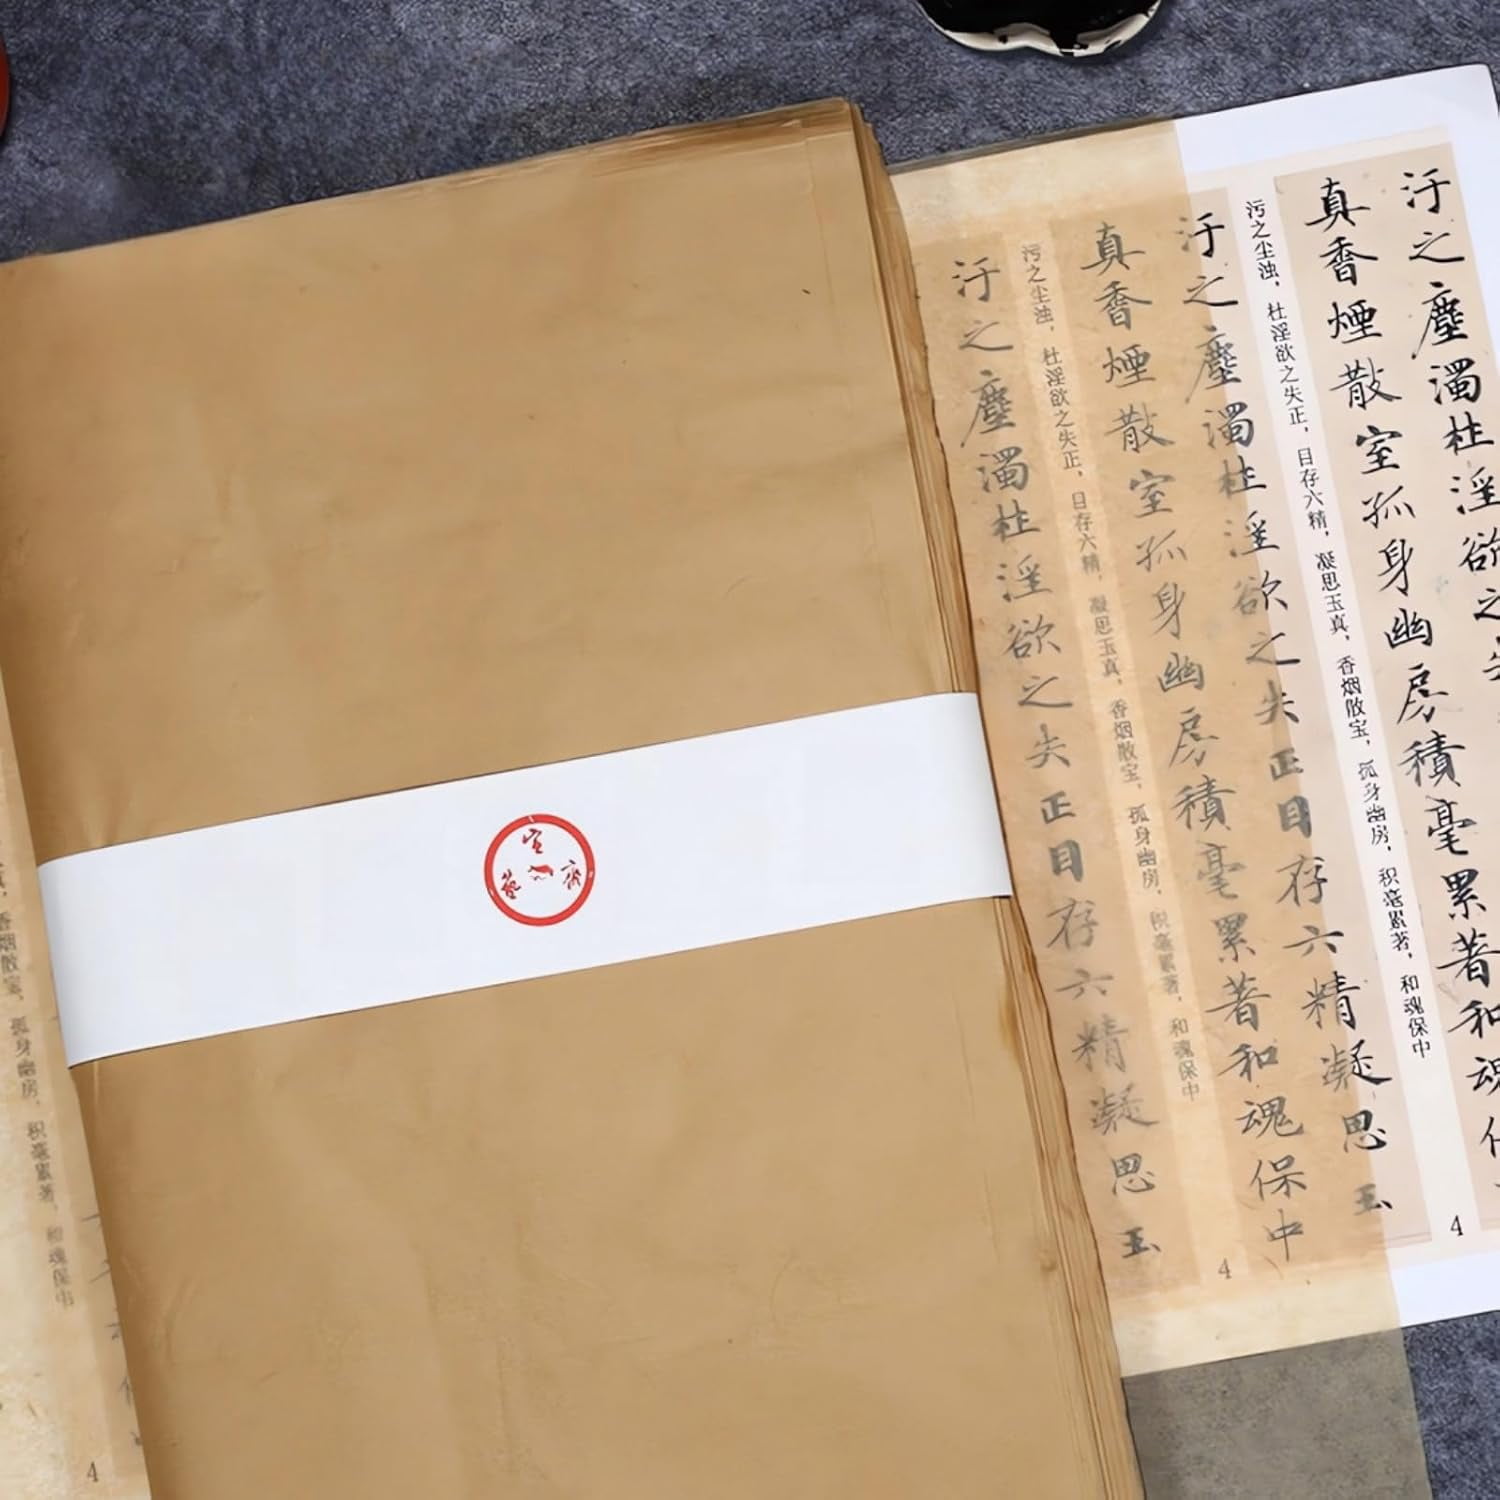 汙之塵濁杜淫欲之
真香煙散室孤身幽房積毫累著和魂
污之尘浊，杜淫欲之失正，目存六精，凝思玉真，香烟散宝，孤身幽房，积毫累著，和魂保中
4
汙之塵濁杜淫欲之失正目存六精凝思玉
真香煙散室孤身幽房積毫累著和魂保中
污之尘浊，杜淫欲之失正，目存六精，凝思玉真，香烟散宝，孤身幽房，积毫累著，和魂保中
4
汙之塵濁杜淫欲之失正目存六精凝思玉
真，香烟散宝，孤身幽房，积毫累著，和魂保中
4